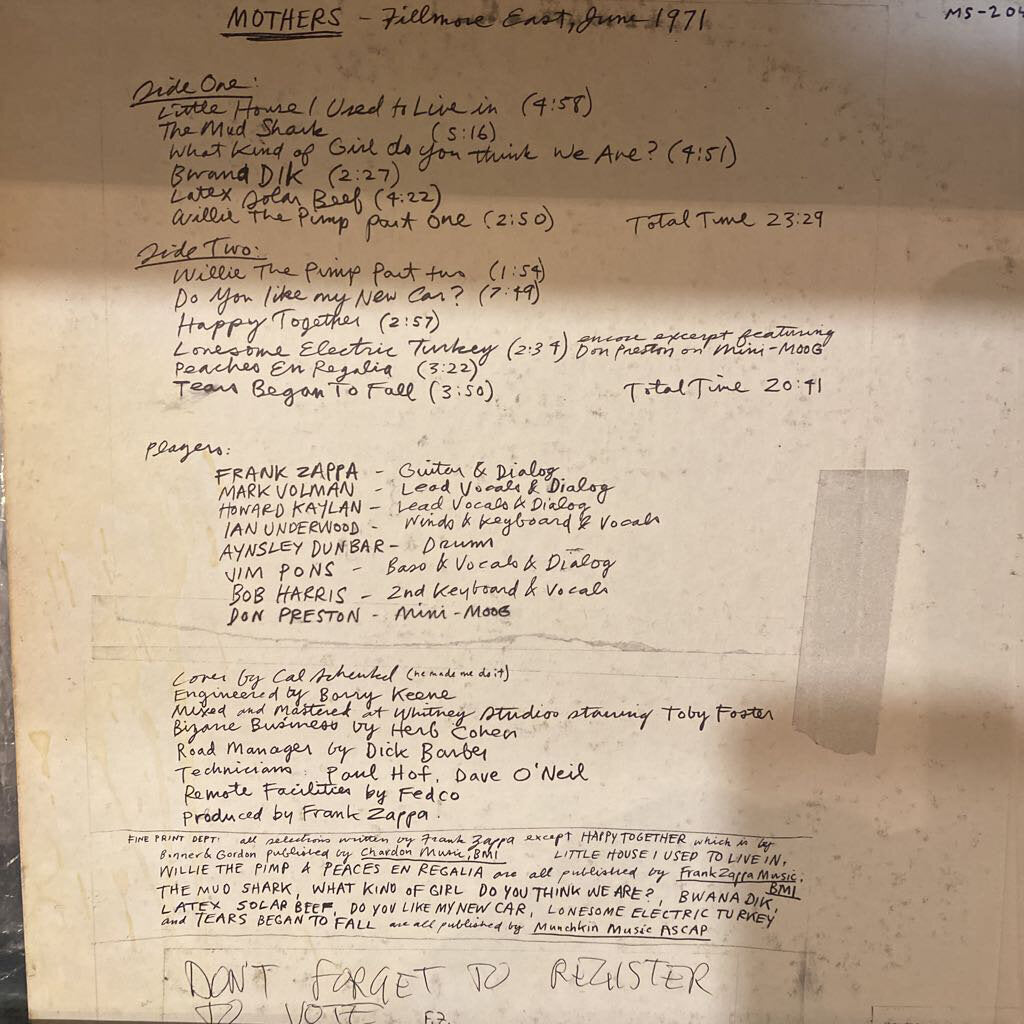 MOTHERS - Fillmore East, June 1971
MS-204
Side One:
Little House I Used to Live in (4:58)
The Mud Shark (5:16)
What Kind of Girl do you think We Are? (4:51)
Bwana DIK (2:27)
Latex Solar Beef (4:22)
Willie The Pimp part one (2:50) Total Time 23:29
Side Two:
Willie The Pimp Part two (1:54)
Do You like my New Car? (7:49)
Happy Together (2:57)
Lonesome Electric Turkey (2:34) encore excerpt featuring Don Preston on Mini-MOOG
Peaches En Regalia (3:22)
Tears Began To Fall (3:50) Total Time 20:41
Players:
FRANK ZAPPA - Guitar & Dialog
MARK VOLMAN - Lead Vocals & Dialog
HOWARD KAYLAN - Lead Vocals & Dialog
IAN UNDERWOOD - Winds & Keyboard & Vocals
AYNSLEY DUNBAR - Drums
JIM PONS - Bass & Vocals & Dialog
BOB HARRIS - 2nd Keyboard & Vocals
DON PRESTON - Mini-MOOG
Cover by Cal Schenkel (he made me do it)
Engineered by Barry Keene
Mixed and Mastered at Whitney Studios starring Toby Foster
Bizarre Business by Herb Cohen
Road Manager by Dick Barber
Technicians: Paul Hof, Dave O'Neil
Remote Facilities by Fedco
Produced by Frank Zappa.
FINE PRINT DEPT: all selections written by Frank Zappa except HAPPY TOGETHER which is by
Bonner & Gordon published by Chardon Music, BMI LITTLE HOUSE I USED TO LIVE IN,
WILLIE THE PIMP & PEACES EN REGALIA are all published by Frank Zappa Music, BMI
THE MUD SHARK, WHAT KIND OF GIRL DO YOU THINK WE ARE?, BWANA DIK,
LATEX SOLAR BEEF, DO YOU LIKE MY NEW CAR, LONESOME ELECTRIC TURKEY
and TEARS BEGAN TO FALL are all published by Munchkin Music ASCAP
DON'T FORGET TO REGISTER
TO VOTE F.Z.